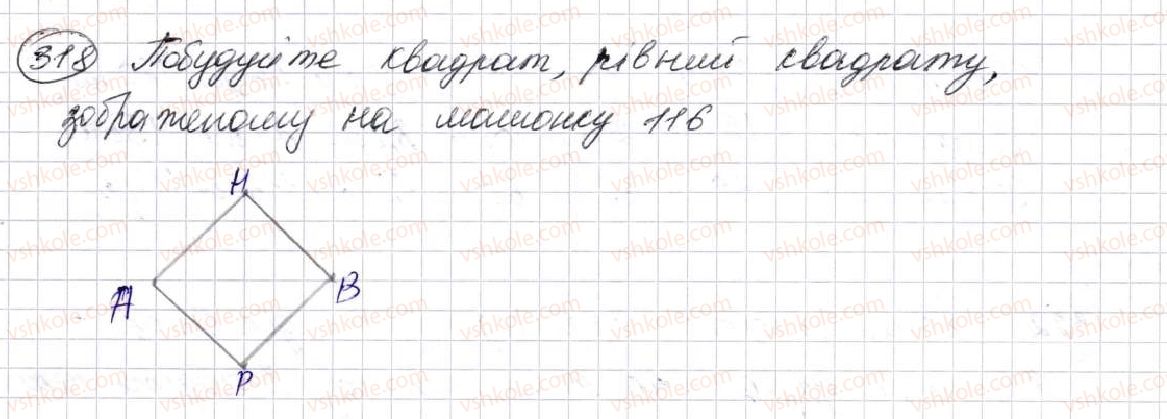 318 Побудуйте квадрат, рівний квадрату,
зображеному на малюнку 116
Н
А
В
Р
vshkole.com